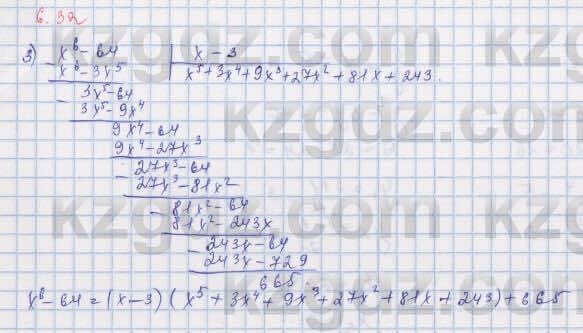 6.32
3) x⁶ - 64 | x - 3
- x⁶ - 3x⁵ | x⁵ + 3x⁴ + 9x³ + 27x² + 81x + 243.
3x⁵ - 64
- 3x⁵ - 9x⁴
9x⁴ - 64
9x⁴ - 27x³
- 27x³ - 64
27x³ - 81x²
- 81x² - 64
81x² - 243x
- 243x - 64
243x - 729
665.
x⁶ - 64 = (x - 3) (x⁵ + 3x⁴ + 9x³ + 27x² + 81x + 243) + 665
kzgdz.com